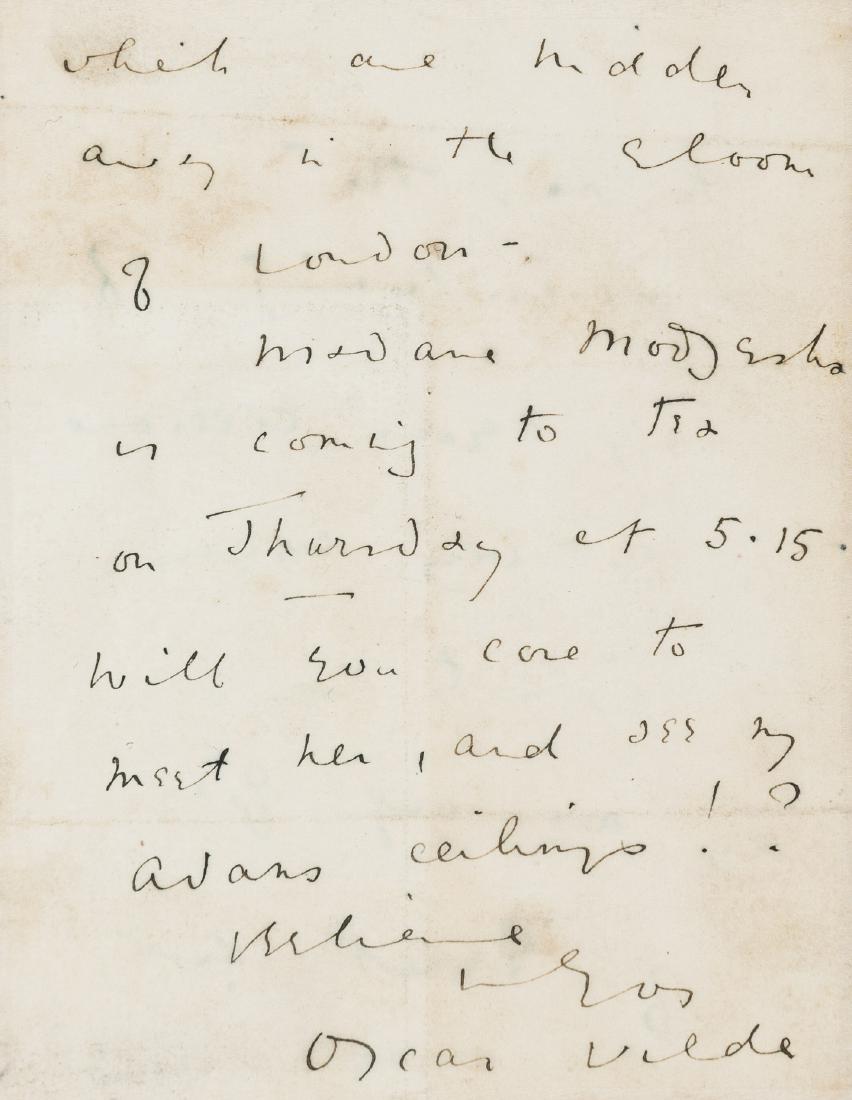 which are hidden
away in the gloom
of London –
Madame Modjeska
is coming to tea
on Thursday at 5.15.
Will you care to
meet her, and see my
Adams ceilings!?
Believe
Oscar Wilde